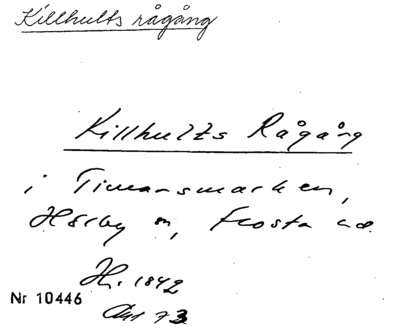 Killhults rågång
Killhults Rågång
i Timansmarken,
Hörby sn, Frosta hd.
Hr. 1842
Nr 10446
Akt 73